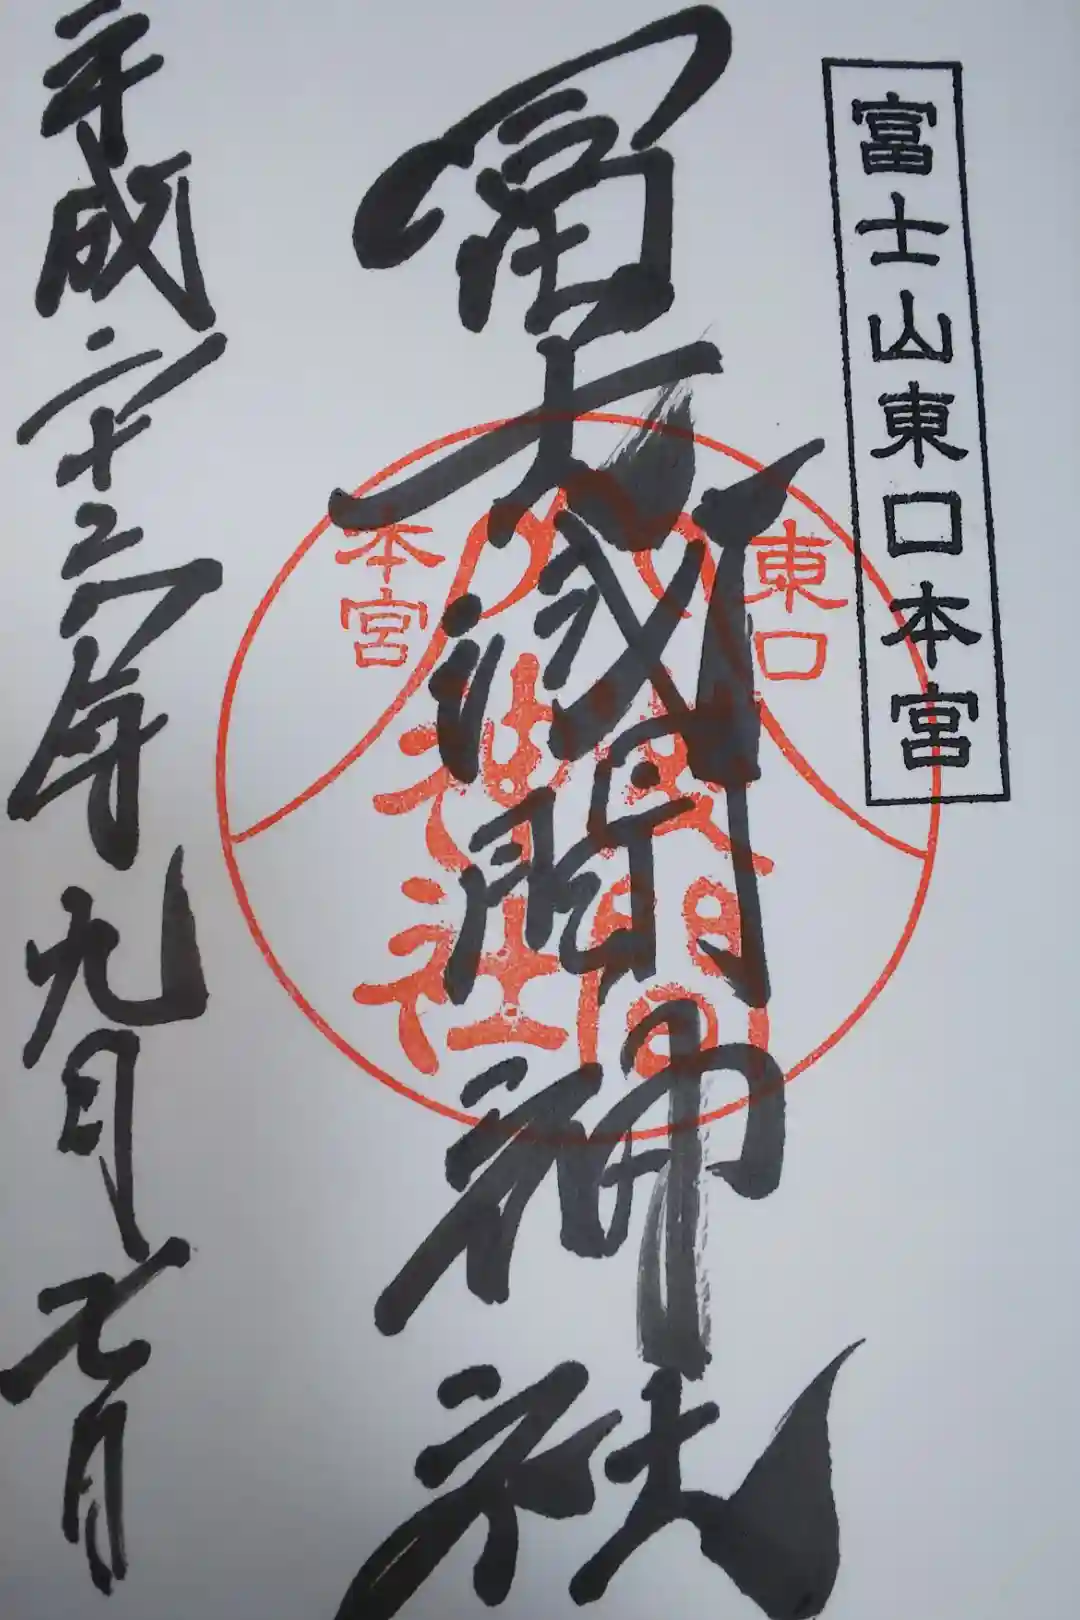 富士山東口本宮
冨士浅間神社
東口
本宮
神社
平成二十六年九月七日